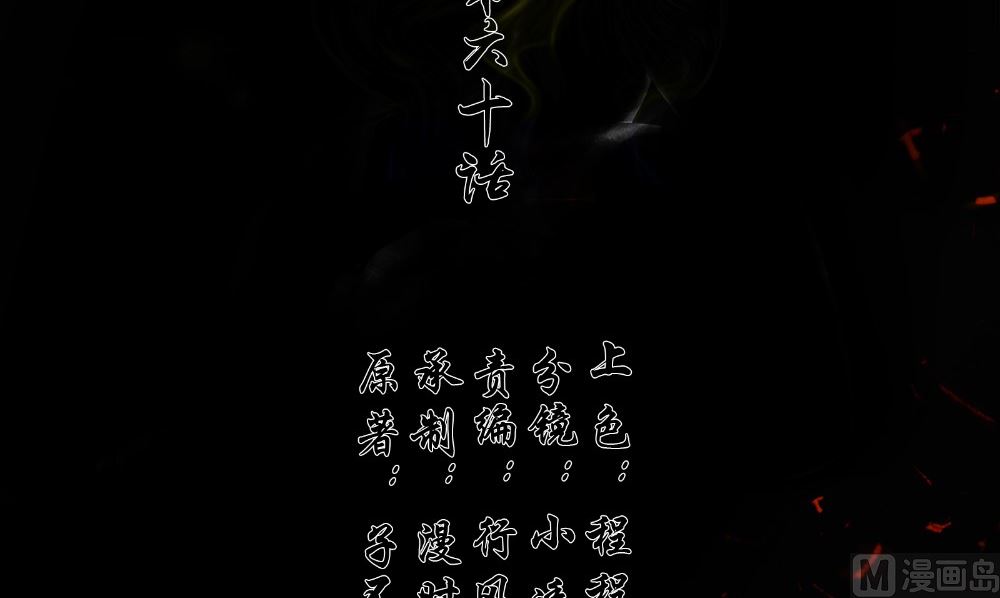 第六十话
上色：程程
分镜：小
责编：行风
承制：漫时
原著：子不
漫画岛